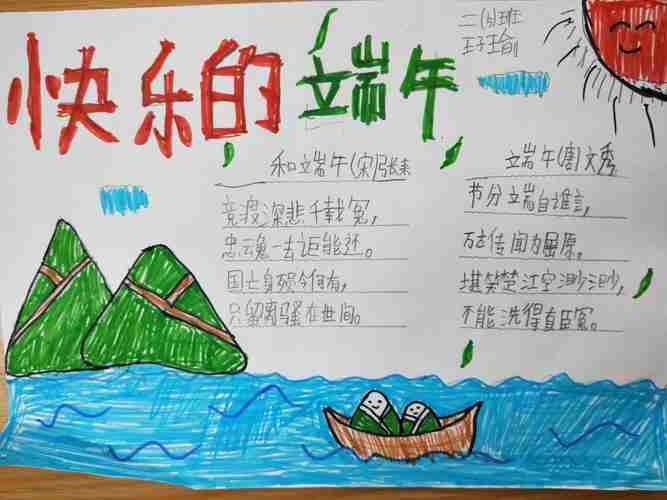 快乐的端午
二(6)班
王子瑜
和端午(宋)张耒
竞渡深悲千载冤，
忠魂一去讵能还。
国亡身殒今何有，
只留离骚在世间。
端午(唐)文秀
节分端午自谁言，
万古传闻为屈原。
堪笑楚江空渺渺，
不能洗得直臣冤。